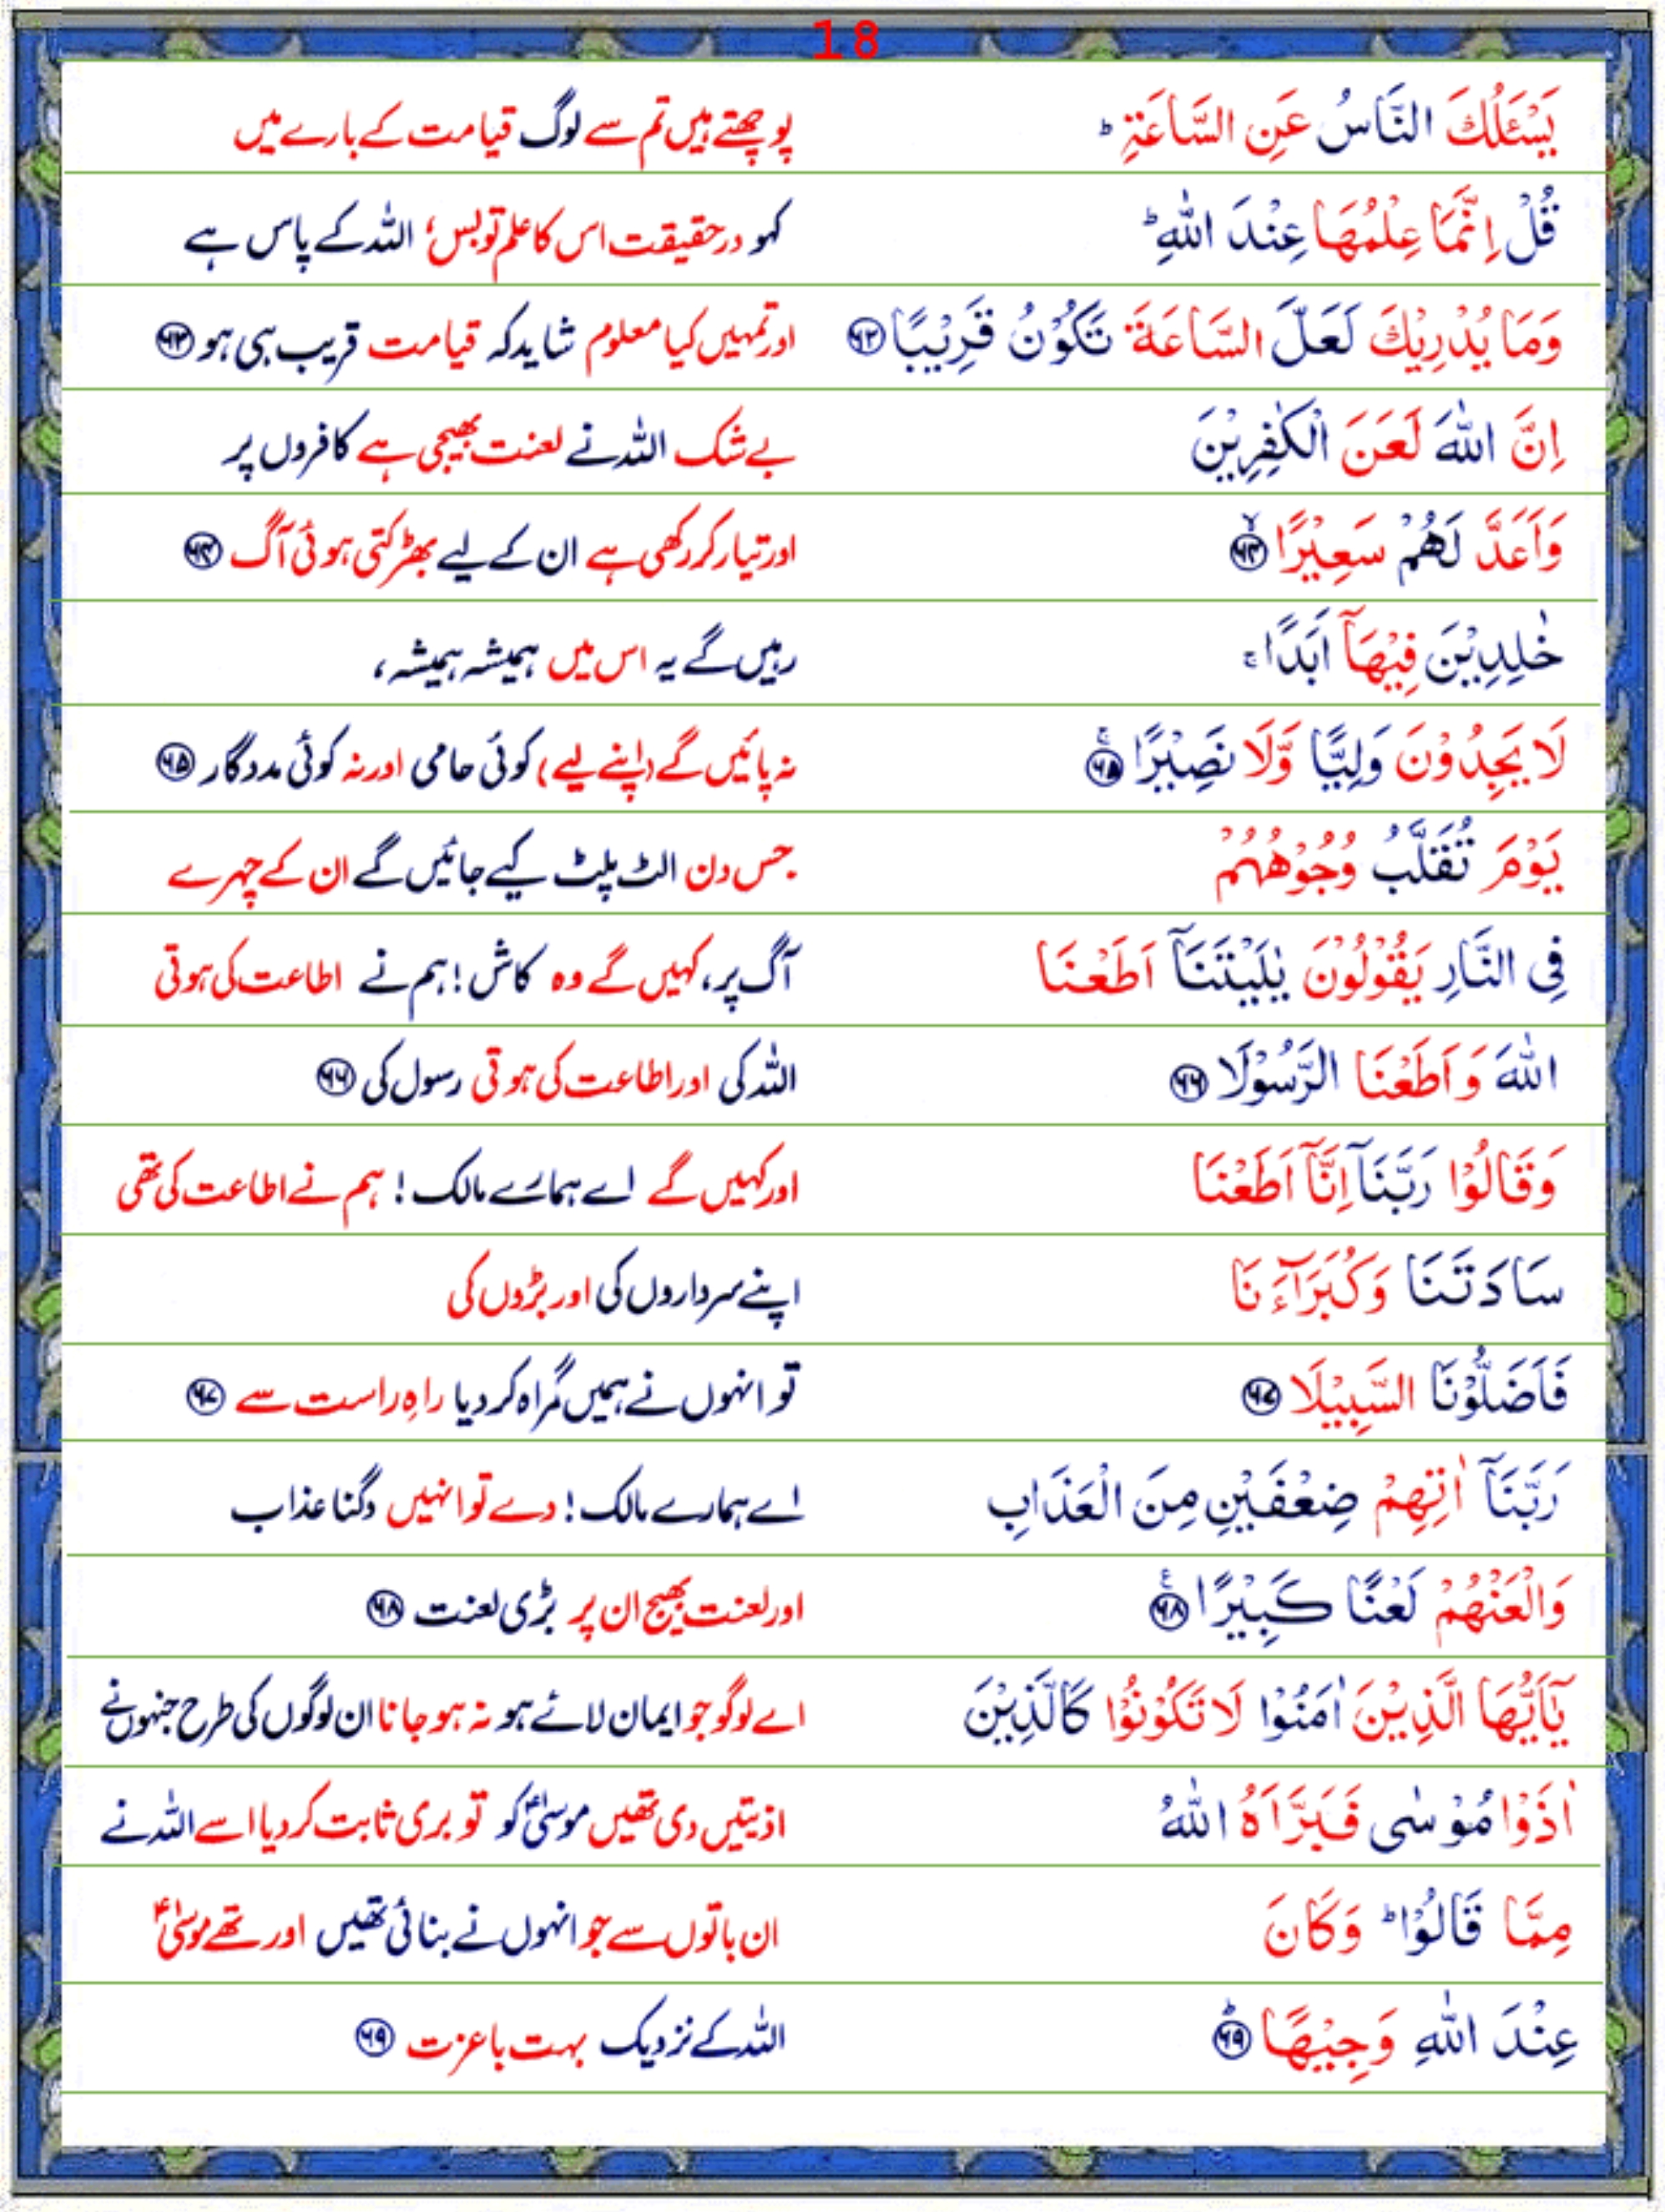 18
يَسْـَٔلُكَ النَّاسُ عَنِ السَّاعَةِ ؕ پوچھتے ہیں تم سے لوگ قیامت کے بارے میں
قُلْ اِنَّمَا عِلْمُهَا عِنْدَ اللّٰهِ ؕ کہو درحقیقت اس کا علم تو بس، اللہ کے پاس ہے
وَمَا يُدْرِيْكَ لَعَلَّ السَّاعَةَ تَكُوْنُ قَرِيْبًا ﴿۶۳﴾ اور تمہیں کیا معلوم شاید کہ قیامت قریب ہی ہو ﴿۶۳﴾
اِنَّ اللّٰهَ لَعَنَ الْكٰفِرِيْنَ بے شک اللہ نے لعنت بھیجی ہے کافروں پر
وَاَعَدَّ لَهُمْ سَعِيْرًا ۙ﴿۶۴﴾ اور تیار کر رکھی ہے ان کے لیے بھڑکتی ہوئی آگ ﴿۶۴﴾
خٰلِدِيْنَ فِيْهَاۤ اَبَدًا ۚ رہیں گے یہ اس میں ہمیشہ ہمیشہ،
لَا يَجِدُوْنَ وَلِيًّا وَّلَا نَصِيْرًا ۚ﴿۶۵﴾ نہ پائیں گے (اپنے لیے) کوئی حامی اور نہ کوئی مددگار ﴿۶۵﴾
يَوْمَ تُقَلَّبُ وُجُوْهُهُمْ جس دن الٹ پلٹ کیے جائیں گے ان کے چہرے
فِى النَّارِ يَقُوْلُوْنَ يٰلَيْتَنَاۤ اَطَعْنَا آگ پر، کہیں گے وہ کاش! ہم نے اطاعت کی ہوتی
اللّٰهَ وَاَطَعْنَا الرَّسُوْلَا ﴿۶۶﴾ اللہ کی اور اطاعت کی ہوتی رسول کی ﴿۶۶﴾
وَقَالُوْا رَبَّنَاۤ اِنَّاۤ اَطَعْنَا اور کہیں گے اے ہمارے مالک! ہم نے اطاعت کی تھی
سَادَتَنَا وَكُبَرَآءَنَا اپنے سرداروں کی اور بڑوں کی
فَاَضَلُّوْنَا السَّبِيْلَا ﴿۶۷﴾ تو انہوں نے ہمیں گمراہ کر دیا راہِ راست سے ﴿۶۷﴾
رَبَّنَاۤ اٰتِهِمْ ضِعْفَيْنِ مِنَ الْعَذَابِ اے ہمارے مالک! دے تو انہیں دگنا عذاب
وَالْعَنْهُمْ لَعْنًا كَبِيْرًا ۧ﴿۶۸﴾ اور لعنت بھیج ان پر بڑی لعنت ﴿۶۸﴾
يٰۤاَيُّهَا الَّذِيْنَ اٰمَنُوْا لَا تَكُوْنُوْا كَالَّذِيْنَ اے لوگو جو ایمان لائے ہو نہ ہو جانا ان لوگوں کی طرح جنہوں نے
اٰذَوْا مُوْسٰى فَبَرَّاَهُ اللّٰهُ اذیتیں دی تھیں موسیٰؑ کو تو بری ثابت کر دیا اسے اللہ نے
مِمَّا قَالُوْا ؕ وَكَانَ ان باتوں سے جو انہوں نے بنائی تھیں اور تھے موسیٰؑ
عِنْدَ اللّٰهِ وَجِيْهًا ؕ﴿۶۹﴾ اللہ کے نزدیک بہت باعزت ﴿۶۹﴾